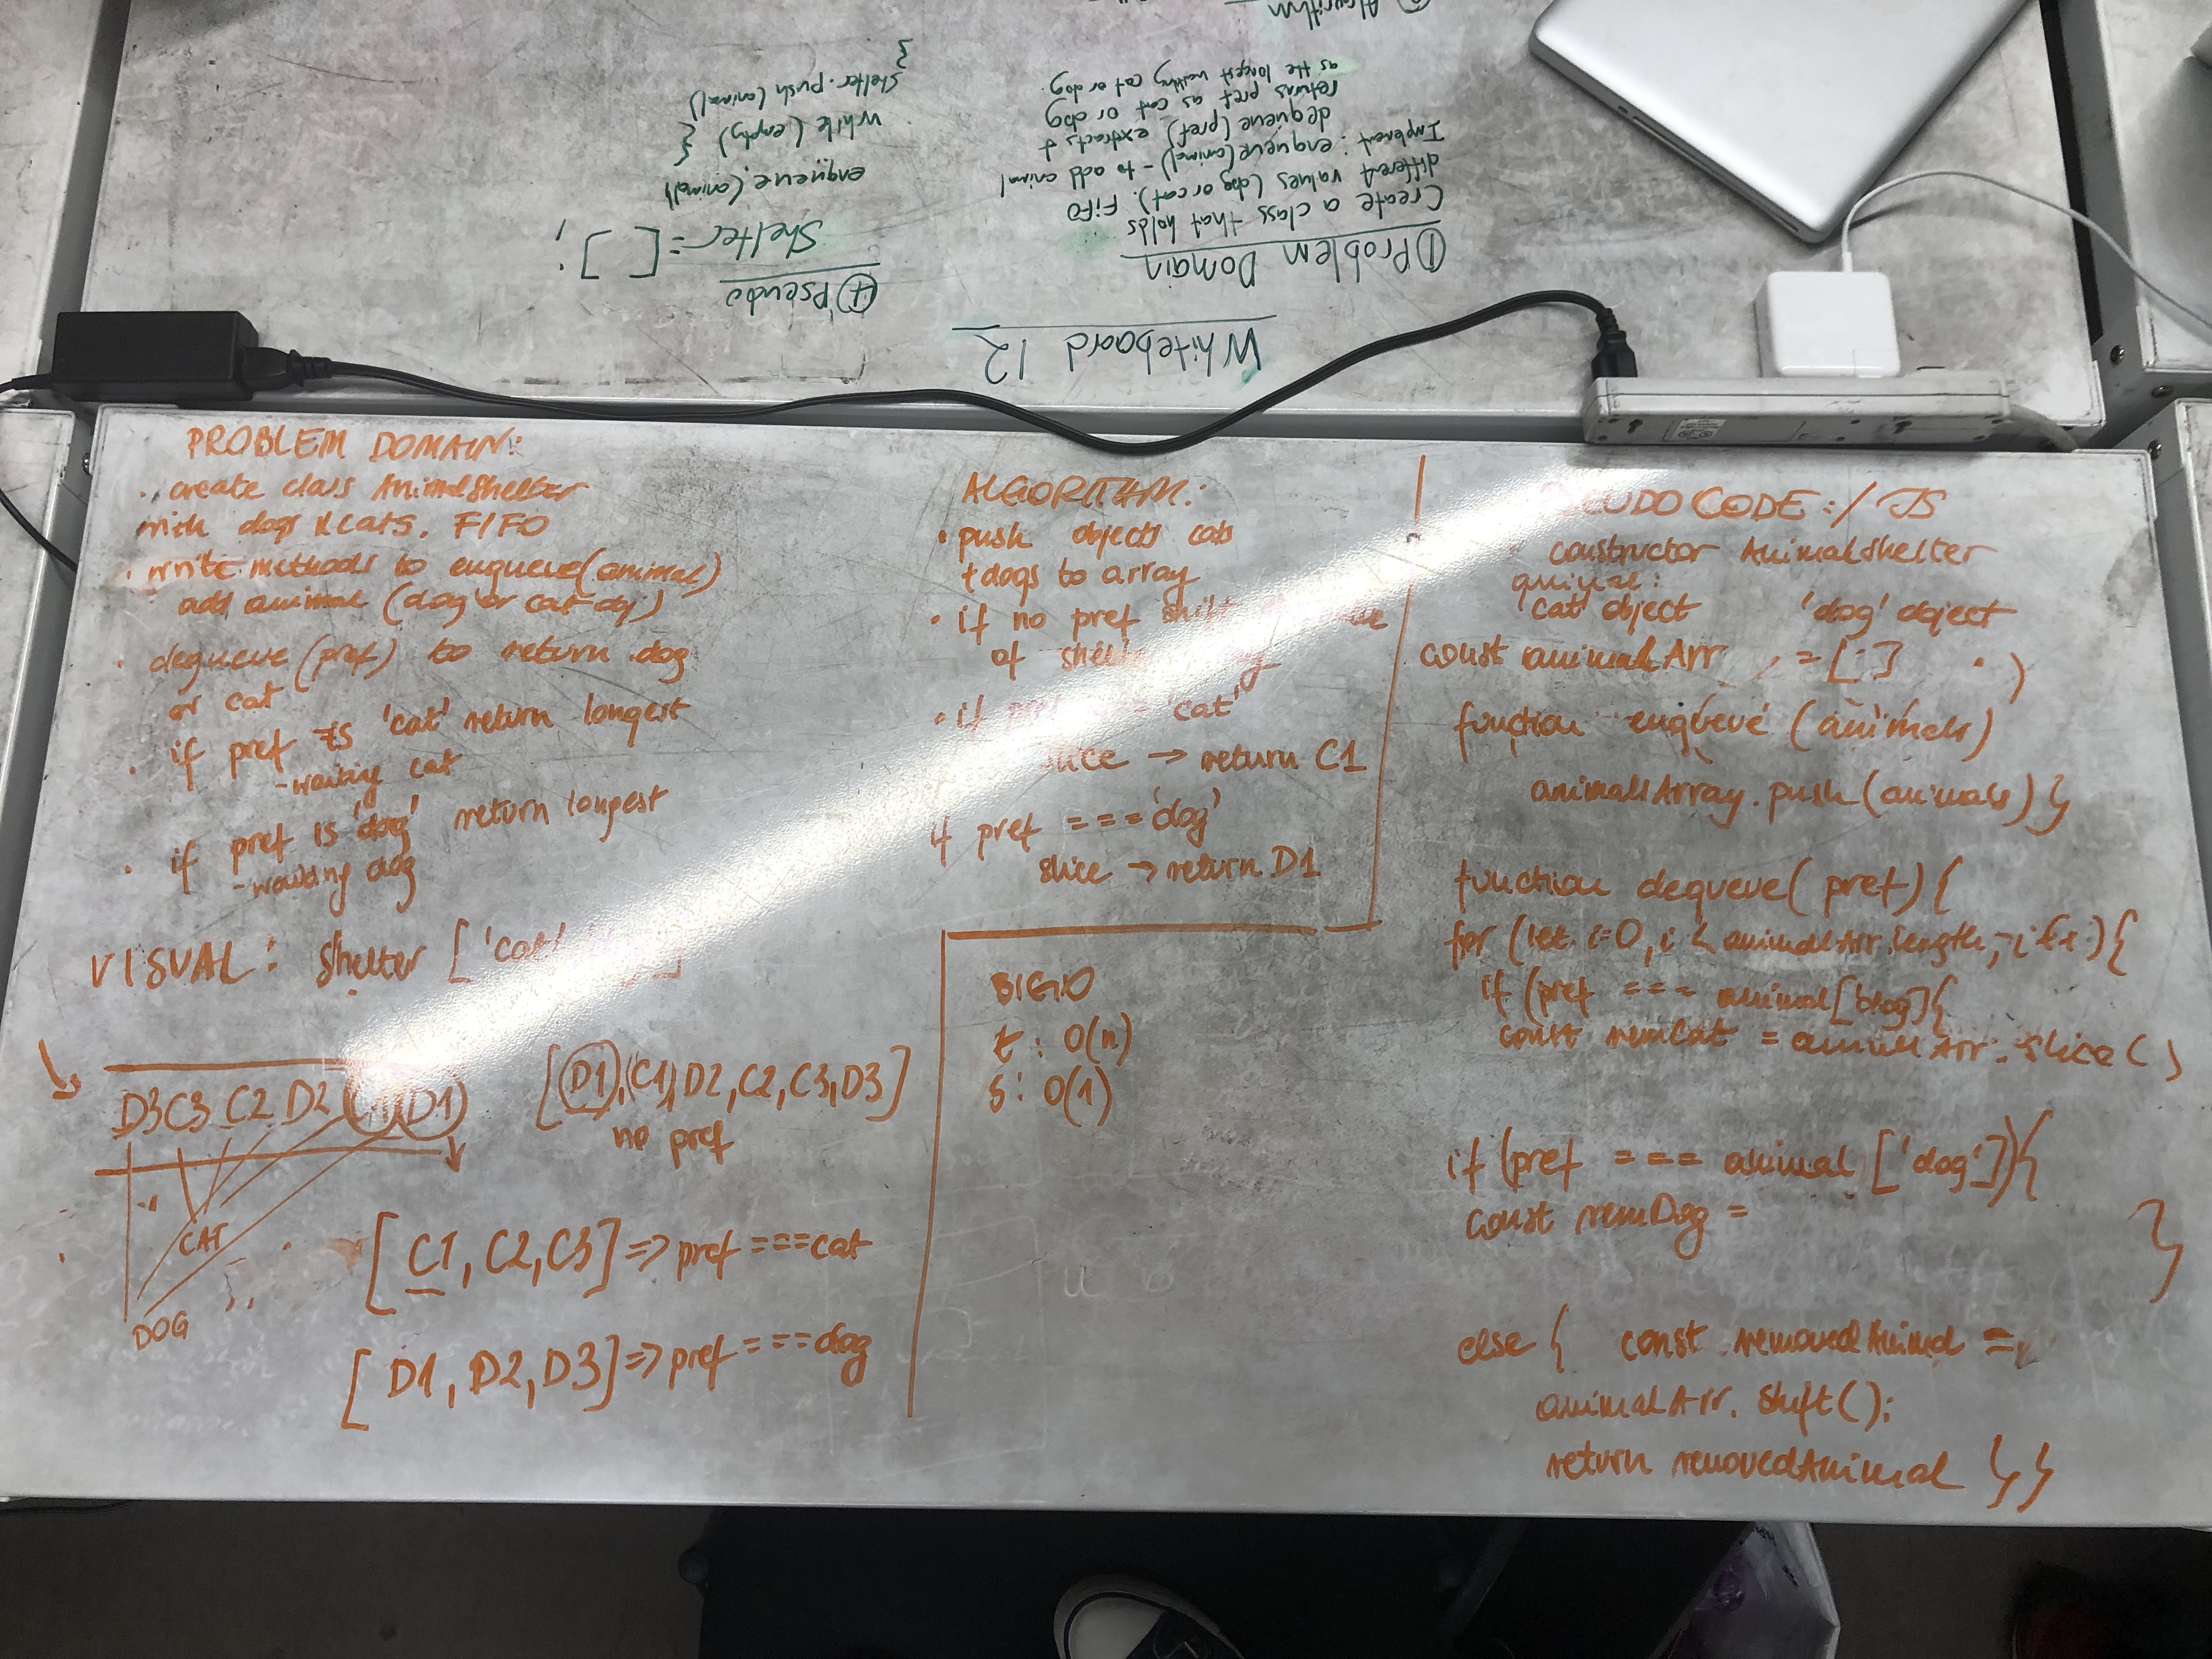 Whiteboard 12
① Problem Domain
Create a class that holds
different values (dog or cat). FiFO
Implement: enqueue(animal) - to add animal
dequeue (pref) extracts &
returns pref as cat or dog
as the longest waiting cat or dog.
② Algorithm
④ Pseudo
Shelter = [ ];
enqueue (animal)
while (empty) {
shelter.push (animal)
}
PROBLEM DOMAIN:
• create class AnimalShelter
with dogs & cats. FIFO
• write methods to enqueue(animal)
add animal (dog or cat obj)
• dequeue (pref) to return dog
or cat
• if pref is 'cat' return longest
- waiting cat
• if pref is 'dog' return longest
- waiting dog
VISUAL: shelter ['cat'
D3 C3 C2 D2 C1 D1
CAT
DOG
[D1, C1, D2, C2, C3, D3]
no pref
[C1, C2, C3] => pref === cat
[D1, D2, D3] => pref === dog
ALGORITHM:
• push objects cats
+ dogs to array
• if no pref shift
of
• if = 'cat'
slice → return C1
if pref === 'dog'
slice → return D1
BIG O
t: O(n)
s: O(1)
PSEUDO CODE: / JS
constructor AnimalShelter
animal:
'cat' object 'dog' object
const animalArr = [ ]
function enqueue (animals)
animalsArray.push (animals) }
function dequeue( pref) {
for (let i=0, i < animalArr.length; i++) {
if (pref === animal[
const remCat = animalArr.slice ( )
if (pref === animal ['dog']) {
const remDog =
}
else { const removedAnimal =
animalArr. shift();
return removedAnimal } }